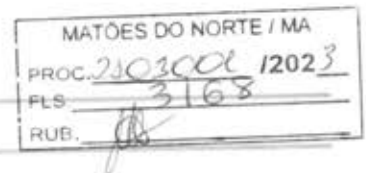 MATÕES DO NORTE / MA
PROC. 2103001 /2023
FLS 3168
RUB.